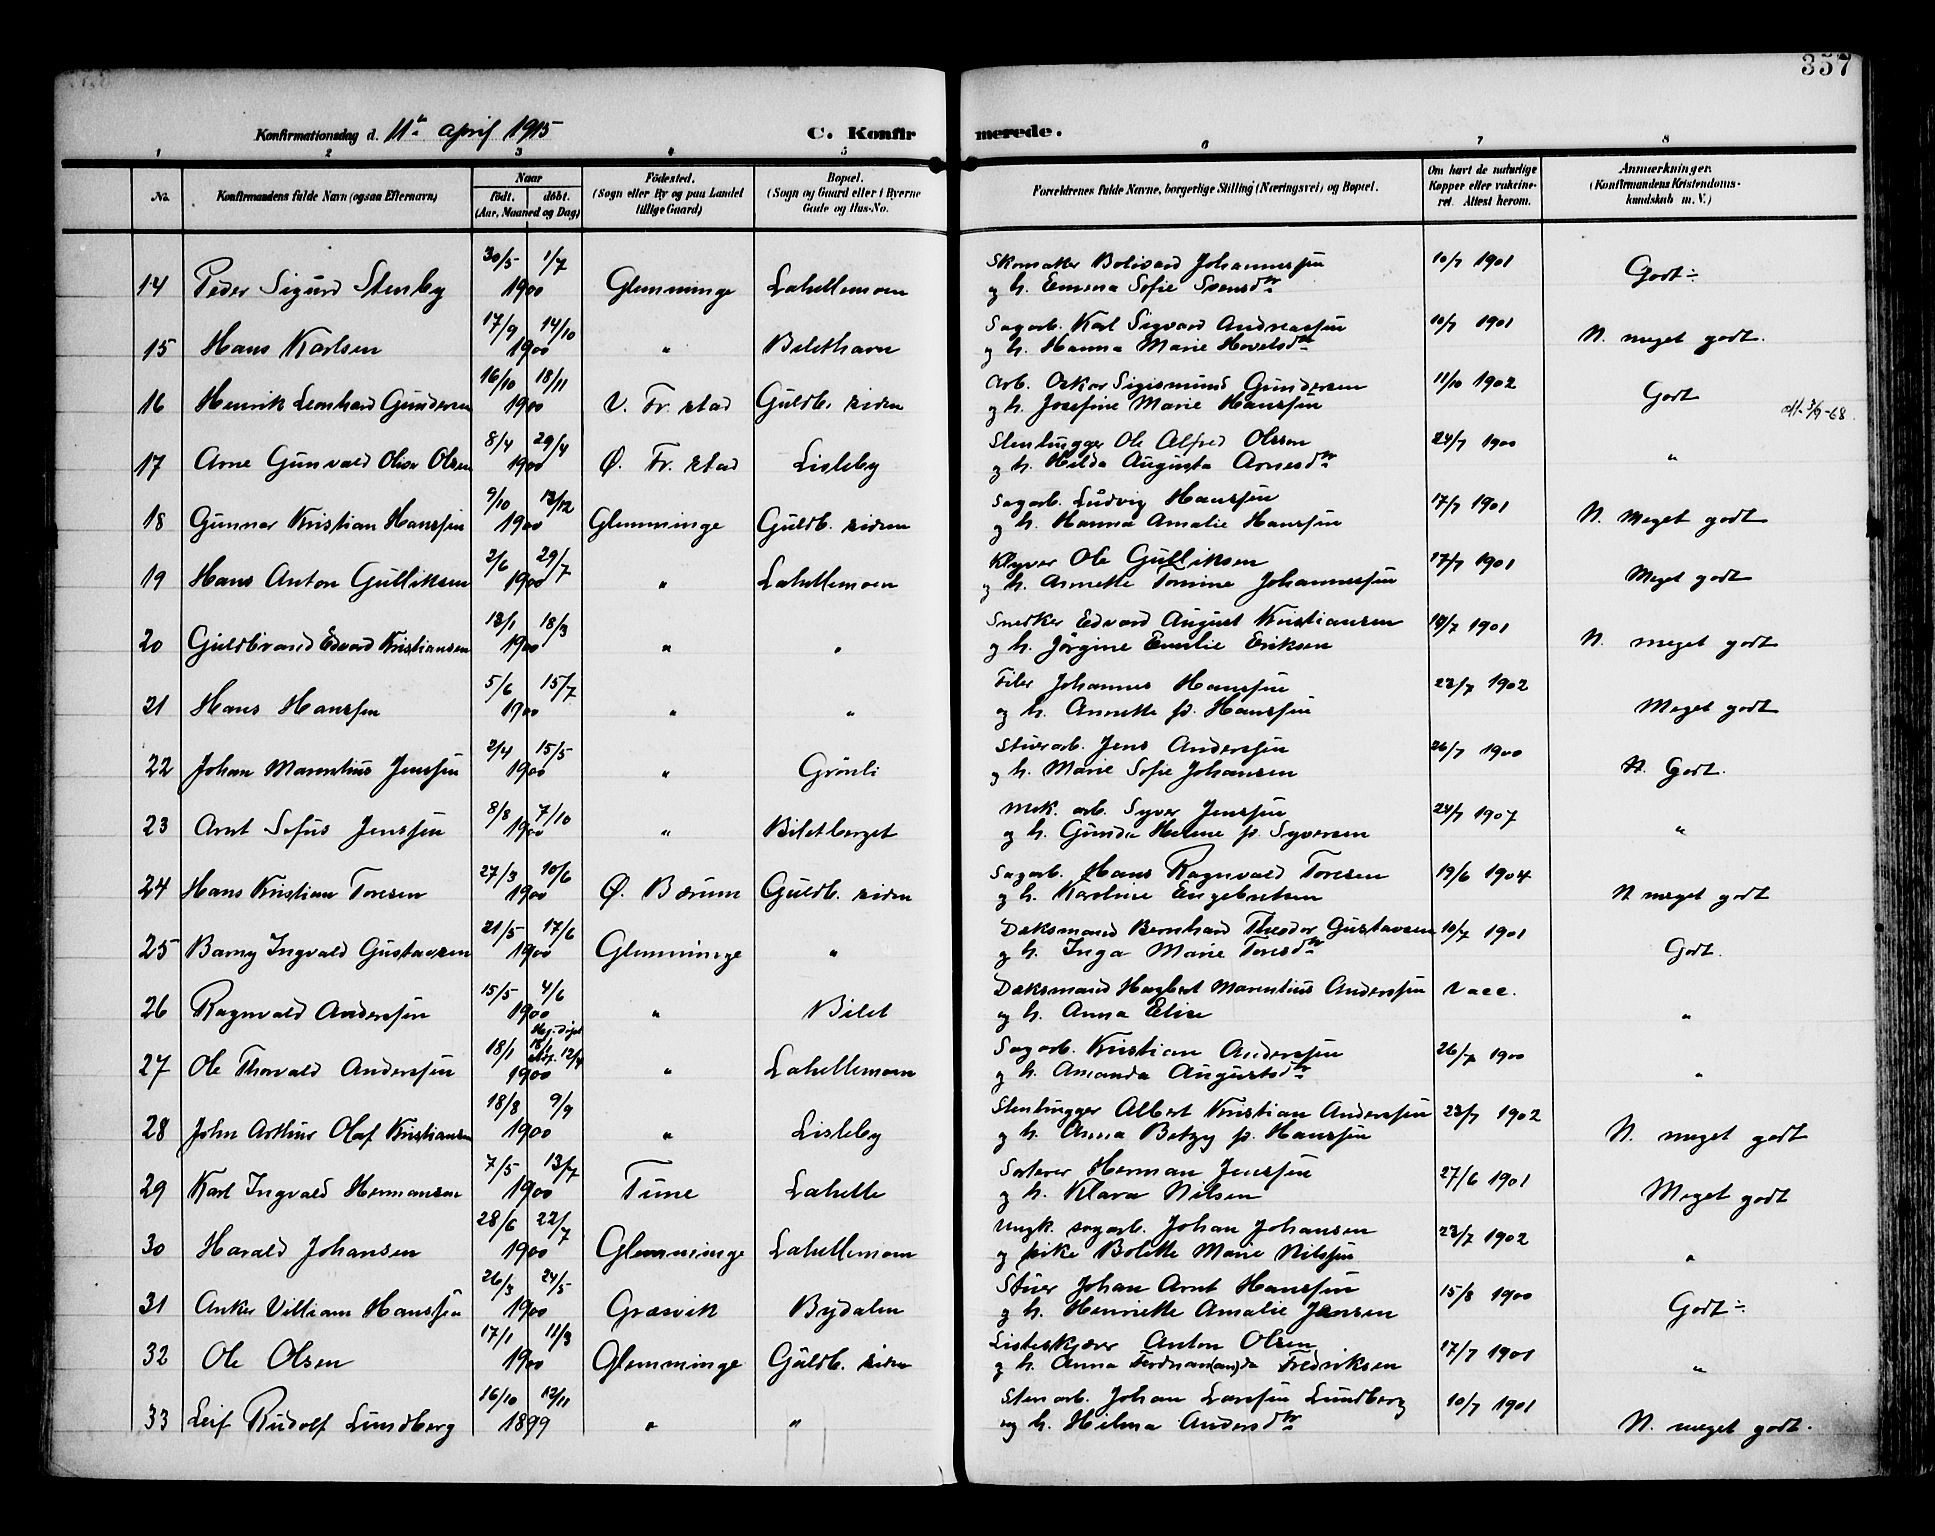 357
Konfirmationsdag d. 11te april 1915
C. Konfirmerede.
1 2 3 4 5 6 7 8
No. Konfirmandens fulde Navn (ogsaa Efternavn) Naar födt. döbt. (Aar, Maaned og Dag) Födested. (Sogn eller By og paa Landet tillige Gaard) Bopæl. (Sogn og Gaard eller i Byerne Gade og Hus-No. Forældrenes fulde Navne, borgerlige Stilling (Næringsvei) og Bopæl. Om havt de naturlige Kopper eller vakcineret. Attest herom. Anmærkninger. (Konfirmandens Kristendomskundskab m. V.)
30/5 1/7 Skomaker Bolivard Johannessen 10/7 1901
14 Peder Sigurd Stenby 1900 Glemminge Lahellemoen g h. Emma Sofie Svensdtr Godt ÷
17/9 14/10 Sagarb. Karl Sigvard Andreassen 10/7 1901
15 Hans Karlsen 1900 " Bilethavn g h. Hanna Marie Hovelsdtr N. meget godt.
16/10 18/11 Arb. Oskar Sigismund Gundersen 11/10 1902
16 Henrik Leonhard Gundersen 1900 V. Fr. stad Guldb. siden g h. Josefine Marie Hanssen Godt
att. 3/9-68.
8/4 29/4 Stenhugger Ole Alfred Olssen 24/7 1900
17 Arne Gunvald Olsen 1900 Ø. Fr. stad Lisleby g h. Hilda Augusta Arnesdtr "
9/10 13/12 Sagarb. Ludvig Hanssen 17/7 1901
18 Gunnar Kristian Hanssen 1900 Glemminge Guldb. siden g h. Hanna Amalie Hanssen N. Meget godt
2/6 29/7 Klyver Ole Gulliksen 17/7 1901
19 Hans Anton Gulliksen 1900 " Lahellemoen g h. Annette Tomine Johannessen Meget godt
13/1 18/3 Snedker Edvard August Kristiansen 18/7 1901
20 Guldbrand Edvard Kristiansen 1900 " " g h. Jörgine Emilie Eriksen N. meget godt
5/6 15/7 Filer Johannes Hanssen 22/7 1902
21 Hans Hanssen 1900 " " og h. Annette f. Hanssen Meget godt
2/4 15/5 Stuerarb. Jens Anderssen 26/7 1900
22 Johan Marentius Jenssen 1900 " Grönli g h. Marie Sofie Johansen N. Godt.
8/8 7/10 Mek. arb. Syver Jenssen 24/7 1907
23 Arnt Sofus Jenssen 1900 " Biletberget g h. Gunda Helene f. Syversen "
27/3 10/6 Sagarb. Hans Ragnvald Toresen 19/6 1904
24 Hans Kristian Toresen 1900 Ø. Bærum Guldb. siden og h. Karoline Engebretsen N meget godt
21/5 17/6 Dæksmand Bernhard Theodor Gustavsen 10/7 1901
25 Barny Ingvald Gustavsen 1900 Glemminge " g h. Inga Marie Toresdtr Godt.
15/5 4/6 Dæksmand Hagbert Marentius Anderssen Vacc.
26 Ragnvald Anderssen 1900 " Bilet og h. Anna Elise "
Hj. döpt
18/1 18/1 12/4 Sagarb. Kristian Anderssen 26/7 1900
27 Ole Thorvald Anderssen 1900 " Lahellemoen g h. Amanda Augustsdtr "
18/8 9/9 Stenhugger Albert Kristian Anderssen 23/7 1902
28 John Arthur Olaf Kristiansen 1900 " Lisleby g h. Anna Betzy f. Hanssen N. meget godt
7/5 13/7 Sorterer Herman Jenssen 27/6 1901
29 Karl Ingvald Hermansen 1900 Tune Lahelle g h. Klara Nilsen Meget godt
28/6 22/7 Ungk. sagarb. Johan Johansen 23/7 1902
30 Harald Johansen 1900 Glemminge Lahellemoen g pike Bolette Marie Nilssen "
26/3 24/5 Stuer Johan Arnt Hanssen 15/8 1900
31 Anker Villiam Hanssen 1900 Græsvik Bydalen g h. Henriette Amalie Jensen Godt ÷
17/1 11/3 Listeskjærer Anton Olsen 17/7 1901
32 Ole Olsen 1900 Glemminge Guldb. siden g h. Anna Ferdnan(an)da Fredriksen "
16/10 12/11 Stenarb. Johan Larssen Lundberg 10/7 1901
33 Leif Rudolf Lundberg 1899 " " og h. Hilma Andersdtr N. meget godt.